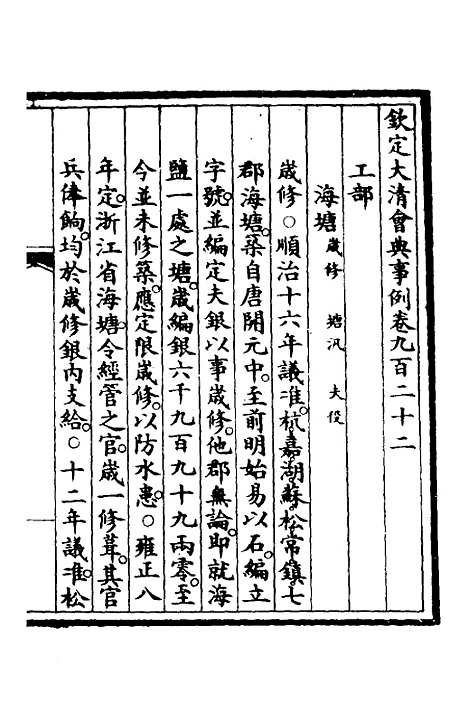 欽定大清會典事例卷九百二十二
工部
海塘歲修 塘汛 夫役
歲修○順治十六年議准杭嘉湖蘇松常鎮七
郡海塘築自唐開元中至前明始易以石編立
字號並編定夫銀以事歲修他郡無論即就海
鹽一處之塘歲編銀六千九百九十九兩零至
今並未修築應定限歲修以防水患○雍正八
年定浙江省海塘令經管之官歲一修葺其官
兵俸餉均於歲修銀內支給○十二年議准松